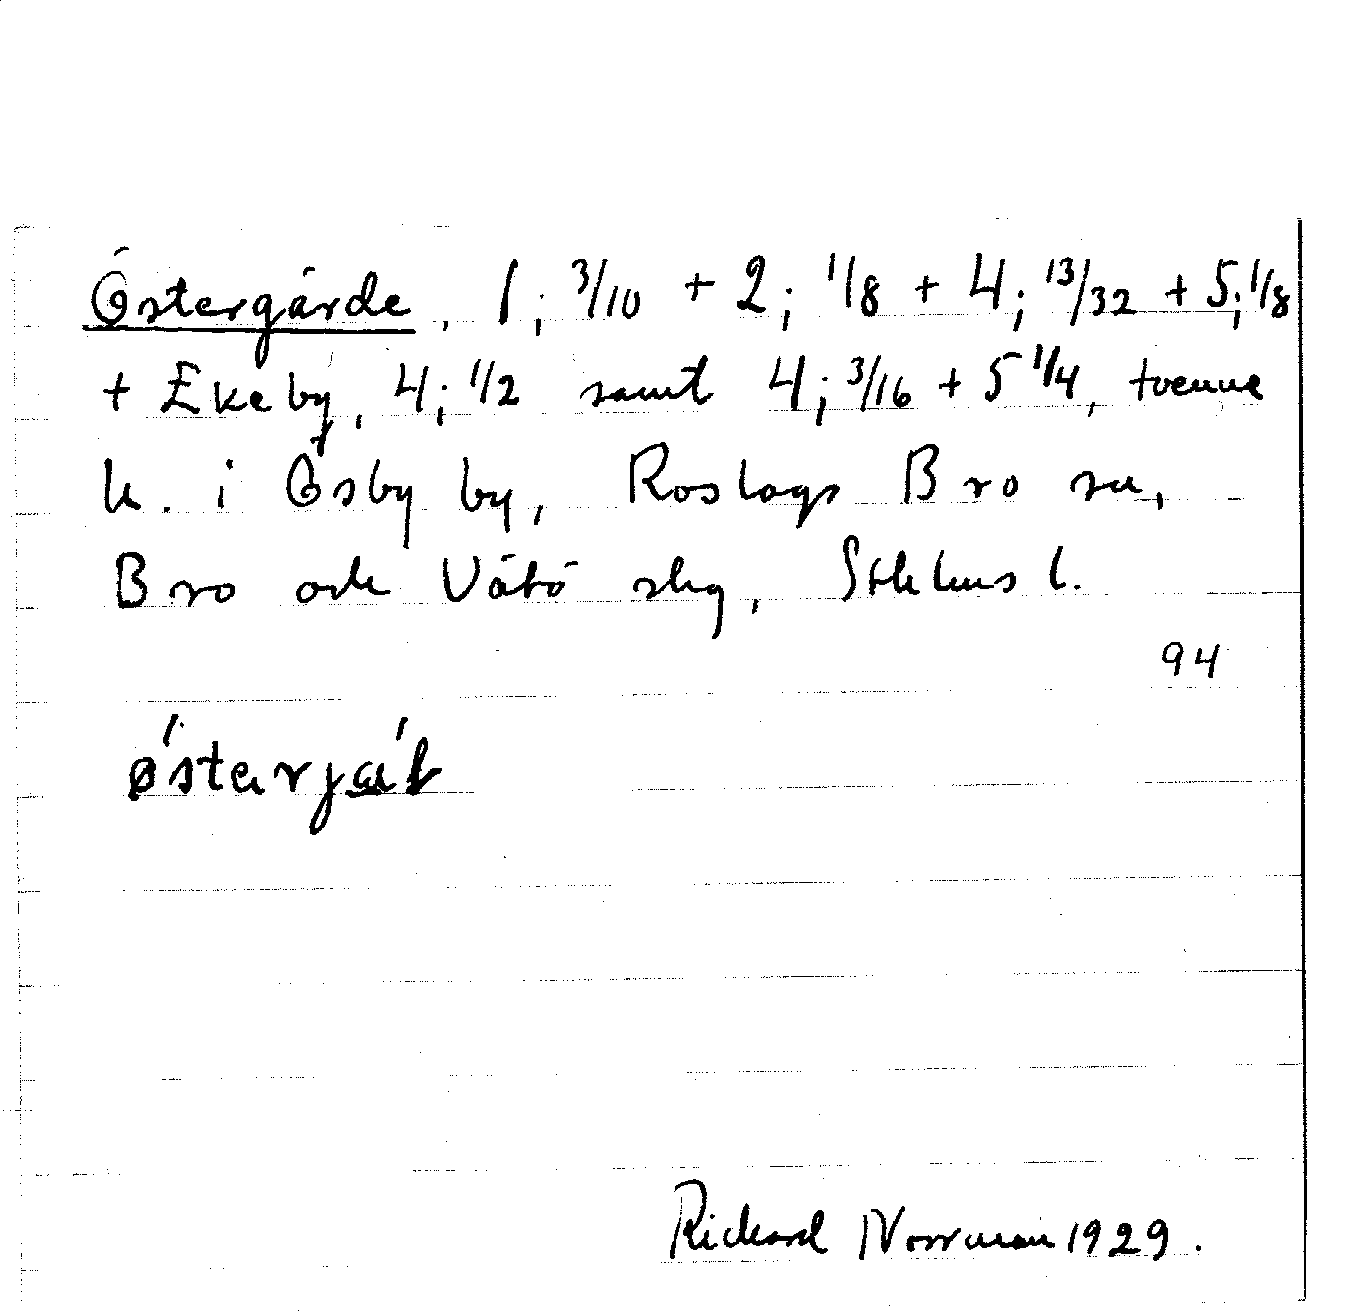 Östergärde, 1; 3/10 + 2; 1/8 + 4; 13/32 + 5; 1/8
+ Ekeby, 4; 1/2 samt 4; 3/16 + 5 1/4, tvenne
h. i Ösby by, Roslags Bro sn,
Bro och Vätö slg, Sthlms l.
94
østarjæ̀ḷ
Rickard Norrman 1929.